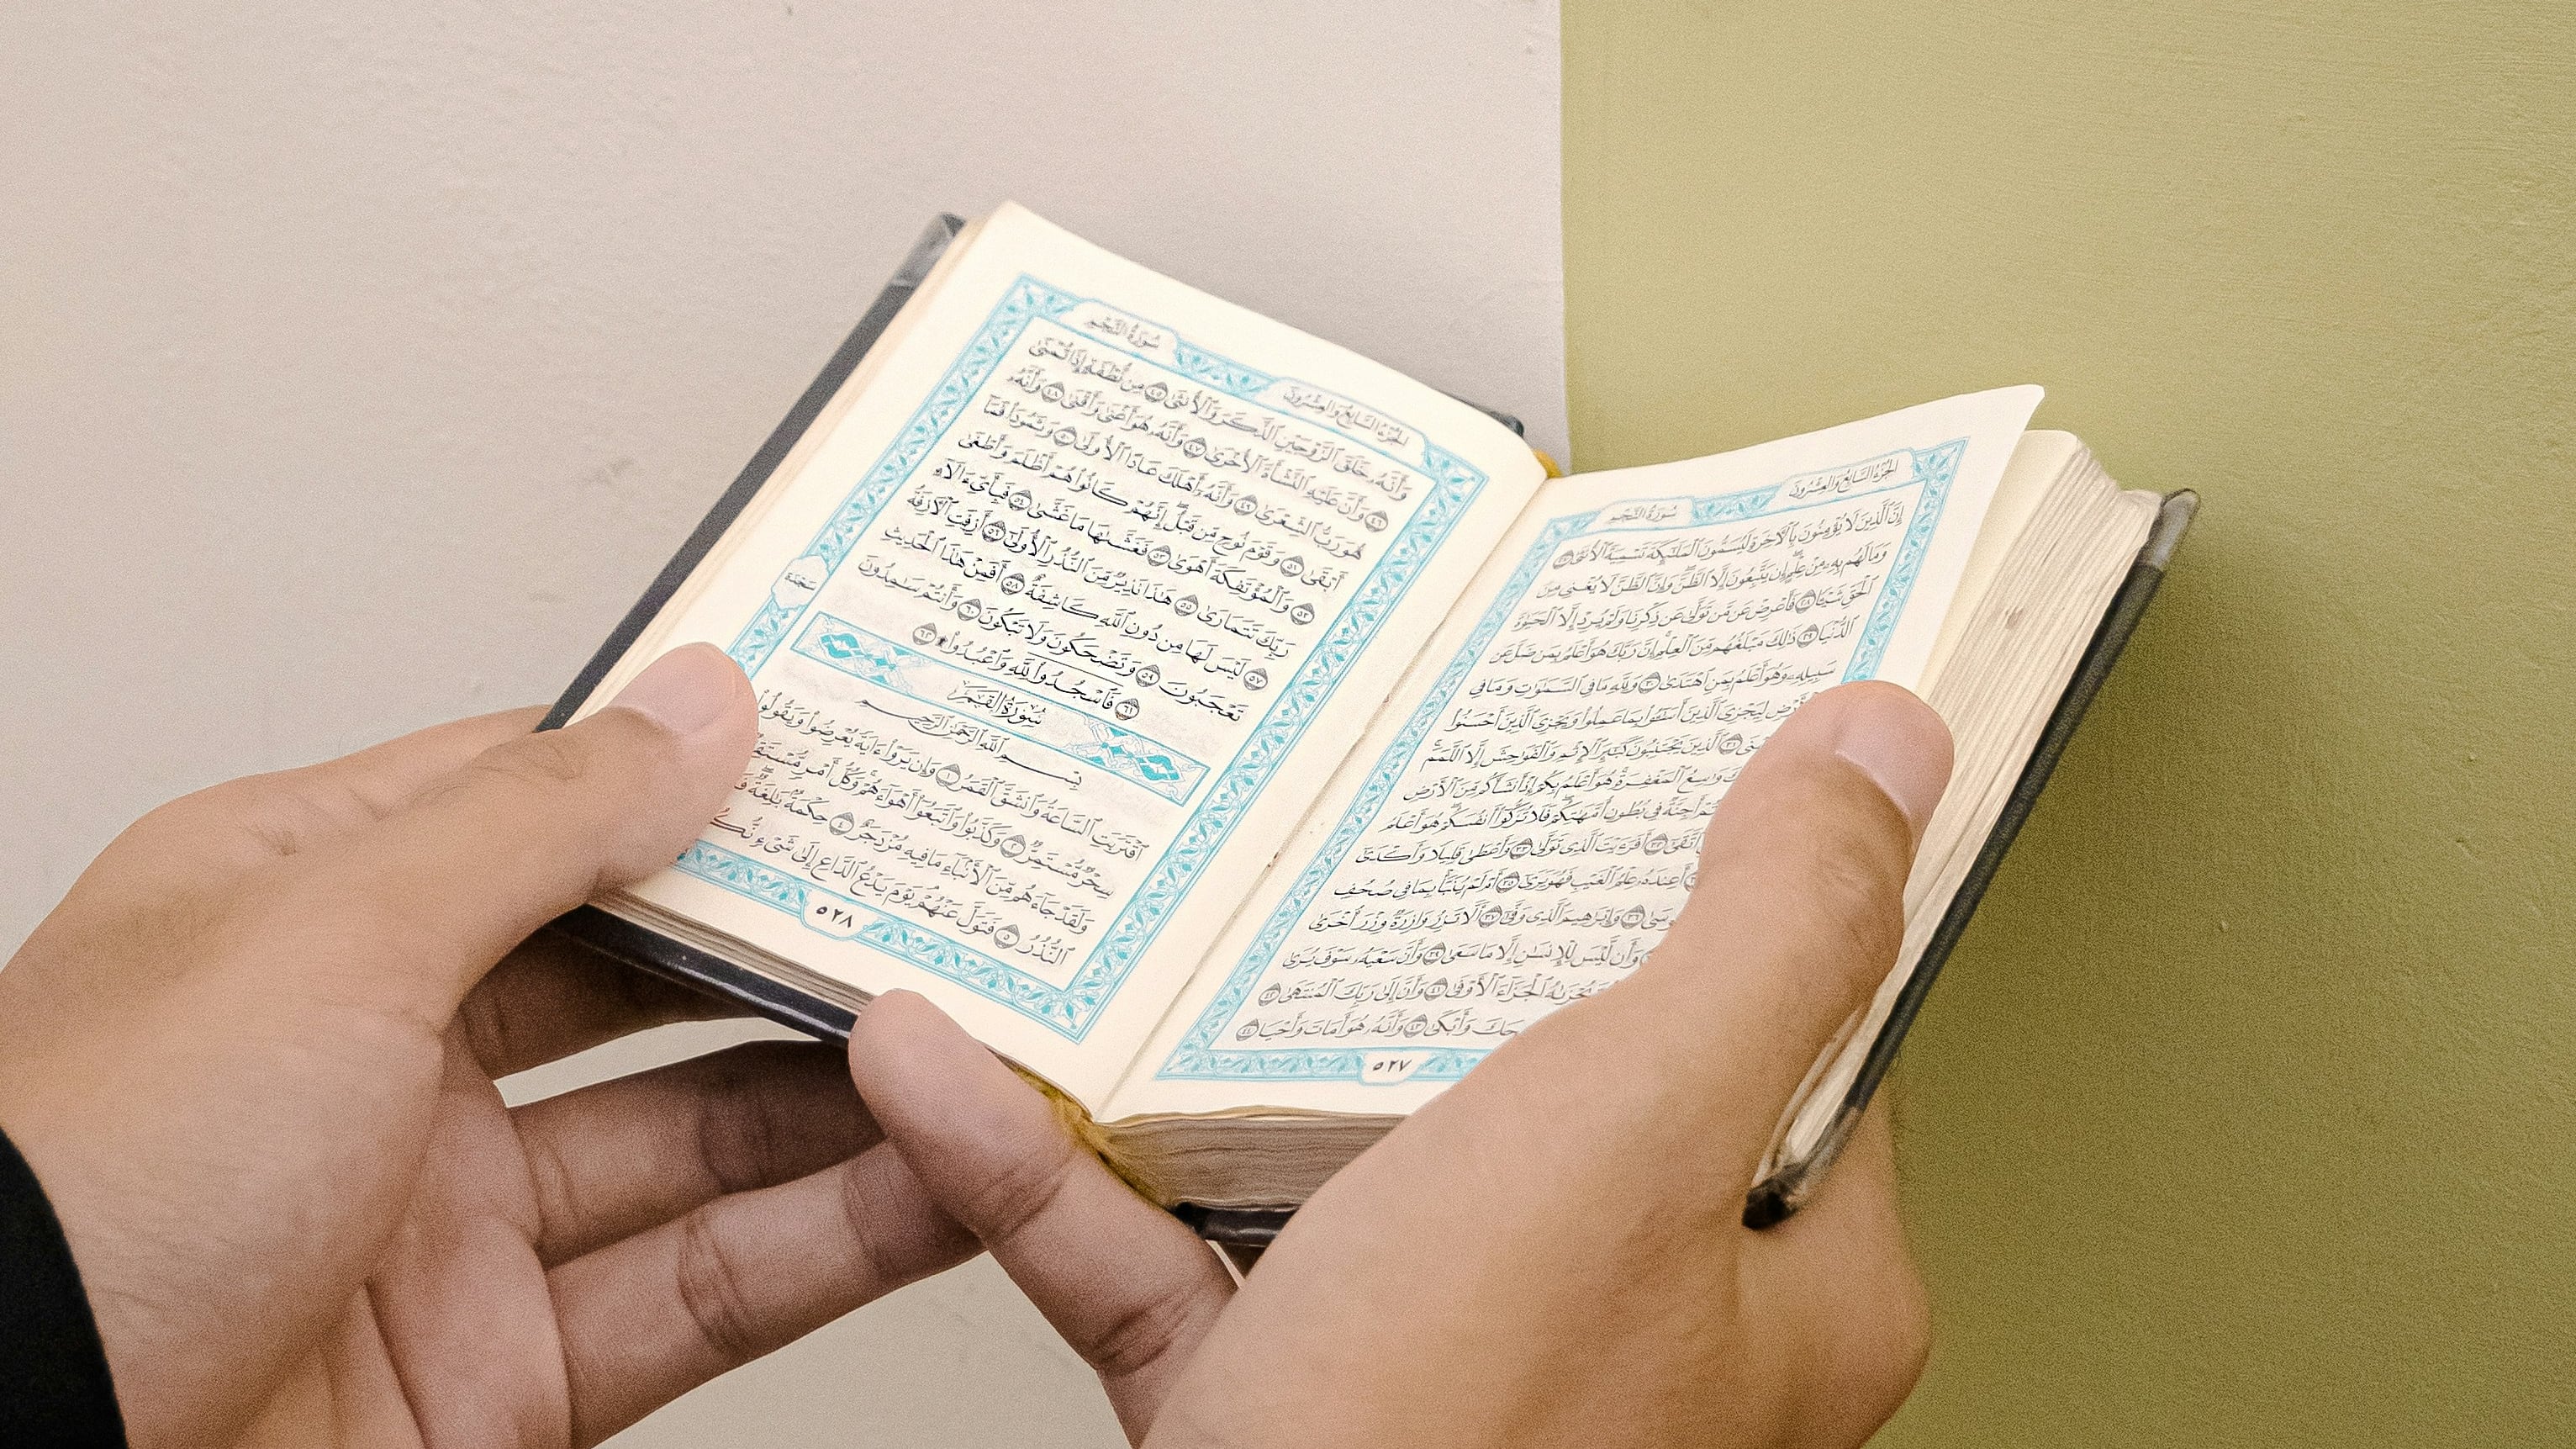 الجزء السابع والعشرون سورة النجم
إِنَّ ٱلَّذِينَ لَا يُؤْمِنُونَ بِٱلْأَخِرَةِ لَيُسَمُّونَ ٱلْمَلَٰٓئِكَةَ تَسْمِيَةَ ٱلْأُنثَىٰ ٢٧
وَمَا لَهُم بِهِۦ مِنْ عِلْمٍ إِن يَتَّبِعُونَ إِلَّا ٱلظَّنَّ وَإِنَّ ٱلظَّنَّ لَا يُغْنِى مِنَ
ٱلْحَقِّ شَيْـًٔا ٢٨ فَأَعْرِضْ عَن مَّن تَوَلَّىٰ عَن ذِكْرِنَا وَلَمْ يُرِدْ إِلَّا ٱلْحَيَوٰةَ
ٱلدُّنْيَا ٢٩ ذَٰلِكَ مَبْلَغُهُم مِّنَ ٱلْعِلْمِ إِنَّ رَبَّكَ هُوَ أَعْلَمُ بِمَن ضَلَّ عَن
سَبِيلِهِۦ وَهُوَ أَعْلَمُ بِمَنِ ٱهْتَدَىٰ ٣٠ وَلِلَّهِ مَا فِى ٱلسَّمَٰوَٰتِ وَمَا فِى
لِيَجْزِىَ ٱلَّذِينَ أَسَٰٓـُٔوا۟ بِمَا عَمِلُوا۟ وَيَجْزِىَ ٱلَّذِينَ أَحْسَنُوا۟
٣١ ٱلَّذِينَ يَجْتَنِبُونَ كَبَٰٓئِرَ ٱلْإِثْمِ وَٱلْفَوَٰحِشَ إِلَّا ٱللَّمَمَ
وَٰسِعُ ٱلْمَغْفِرَةِ هُوَ أَعْلَمُ بِكُمْ إِذْ أَنشَأَكُم مِّنَ ٱلْأَرْضِ
أَجِنَّةٌ فِى بُطُونِ أُمَّهَٰتِكُمْ فَلَا تُزَكُّوٓا۟ أَنفُسَكُمْ هُوَ أَعْلَمُ
ٱتَّقَىٰٓ ٣٢ أَفَرَءَيْتَ ٱلَّذِى تَوَلَّىٰ ٣٣ وَأَعْطَىٰ قَلِيلًا وَأَكْدَىٰٓ
أَعِندَهُۥ عِلْمُ ٱلْغَيْبِ فَهُوَ يَرَىٰٓ ٣٥ أَمْ لَمْ يُنَبَّأْ بِمَا فِى صُحُفِ
٣٦ وَإِبْرَٰهِيمَ ٱلَّذِى وَفَّىٰٓ ٣٧ أَلَّا تَزِرُ وَازِرَةٌ وِزْرَ أُخْرَىٰ
وَأَن لَّيْسَ لِلْإِنسَٰنِ إِلَّا مَا سَعَىٰ ٣٩ وَأَنَّ سَعْيَهُۥ سَوْفَ يُرَىٰ
ٱلْجَزَآءَ ٱلْأَوْفَىٰ ٤١ وَأَنَّ إِلَىٰ رَبِّكَ ٱلْمُنتَهَىٰ ٤٢
وَأَبْكَىٰ ٤٣ وَأَنَّهُۥ هُوَ أَمَاتَ وَأَحْيَا ٤٤
٥٢٧
الجزء السابع والعشرون سورة النجم
وَأَنَّهُۥ خَلَقَ ٱلزَّوْجَيْنِ ٱلذَّكَرَ وَٱلْأُنثَىٰ ٤٥ مِن نُّطْفَةٍ إِذَا تُمْنَىٰ
٤٦ وَأَنَّ عَلَيْهِ ٱلنَّشْأَةَ ٱلْأُخْرَىٰ ٤٧ وَأَنَّهُۥ هُوَ أَغْنَىٰ وَأَقْنَىٰ ٤٨ وَأَنَّهُۥ
هُوَ رَبُّ ٱلشِّعْرَىٰ ٤٩ وَأَنَّهُۥٓ أَهْلَكَ عَادًا ٱلْأُولَىٰ ٥٠ وَثَمُودَا۟ فَمَآ
أَبْقَىٰ ٥١ وَقَوْمَ نُوحٍ مِّن قَبْلُ إِنَّهُمْ كَانُوا۟ هُمْ أَظْلَمَ وَأَطْغَىٰ
٥٢ وَٱلْمُؤْتَفِكَةَ أَهْوَىٰ ٥٣ فَغَشَّىٰهَا مَا غَشَّىٰ ٥٤ فَبِأَىِّ ءَالَآءِ
رَبِّكَ تَتَمَارَىٰ ٥٥ هَٰذَا نَذِيرٌ مِّنَ ٱلنُّذُرِ ٱلْأُولَىٰٓ ٥٦ أَزِفَتِ ٱلْأَزِفَةُ
٥٧ لَيْسَ لَهَا مِن دُونِ ٱللَّهِ كَاشِفَةٌ ٥٨ أَفَمِنْ هَٰذَا ٱلْحَدِيثِ
تَعْجَبُونَ ٥٩ وَتَضْحَكُونَ وَلَا تَبْكُونَ ٦٠ وَأَنتُمْ سَٰمِدُونَ
٦١ فَٱسْجُدُوا۟ لِلَّهِ وَٱعْبُدُوا۟ ۩ ٦٢
سجدة
سُورَةُ القَمَرِ
بِسْمِ ٱللَّهِ ٱلرَّحْمَٰنِ ٱلرَّحِيمِ
ٱقْتَرَبَتِ ٱلسَّاعَةُ وَٱنشَقَّ ٱلْقَمَرُ ١ وَإِن يَرَوْا۟ ءَايَةً يُعْرِضُوا۟ وَيَقُولُوا۟
سِحْرٌ مُّسْتَمِرٌّ ٢ وَكَذَّبُوا۟ وَٱتَّبَعُوٓا۟ أَهْوَآءَهُمْ وَكُلُّ أَمْرٍ
وَلَقَدْ جَآءَهُم مِّنَ ٱلْأَنۢبَآءِ مَا فِيهِ مُزْدَجَرٌ ٤ حِكْمَةٌۢ بَٰلِغَةٌ
ٱلنُّذُرُ ٥ فَتَوَلَّ عَنْهُمْ يَوْمَ يَدْعُ ٱلدَّاعِ إِلَىٰ شَىْءٍ
٥٢٨